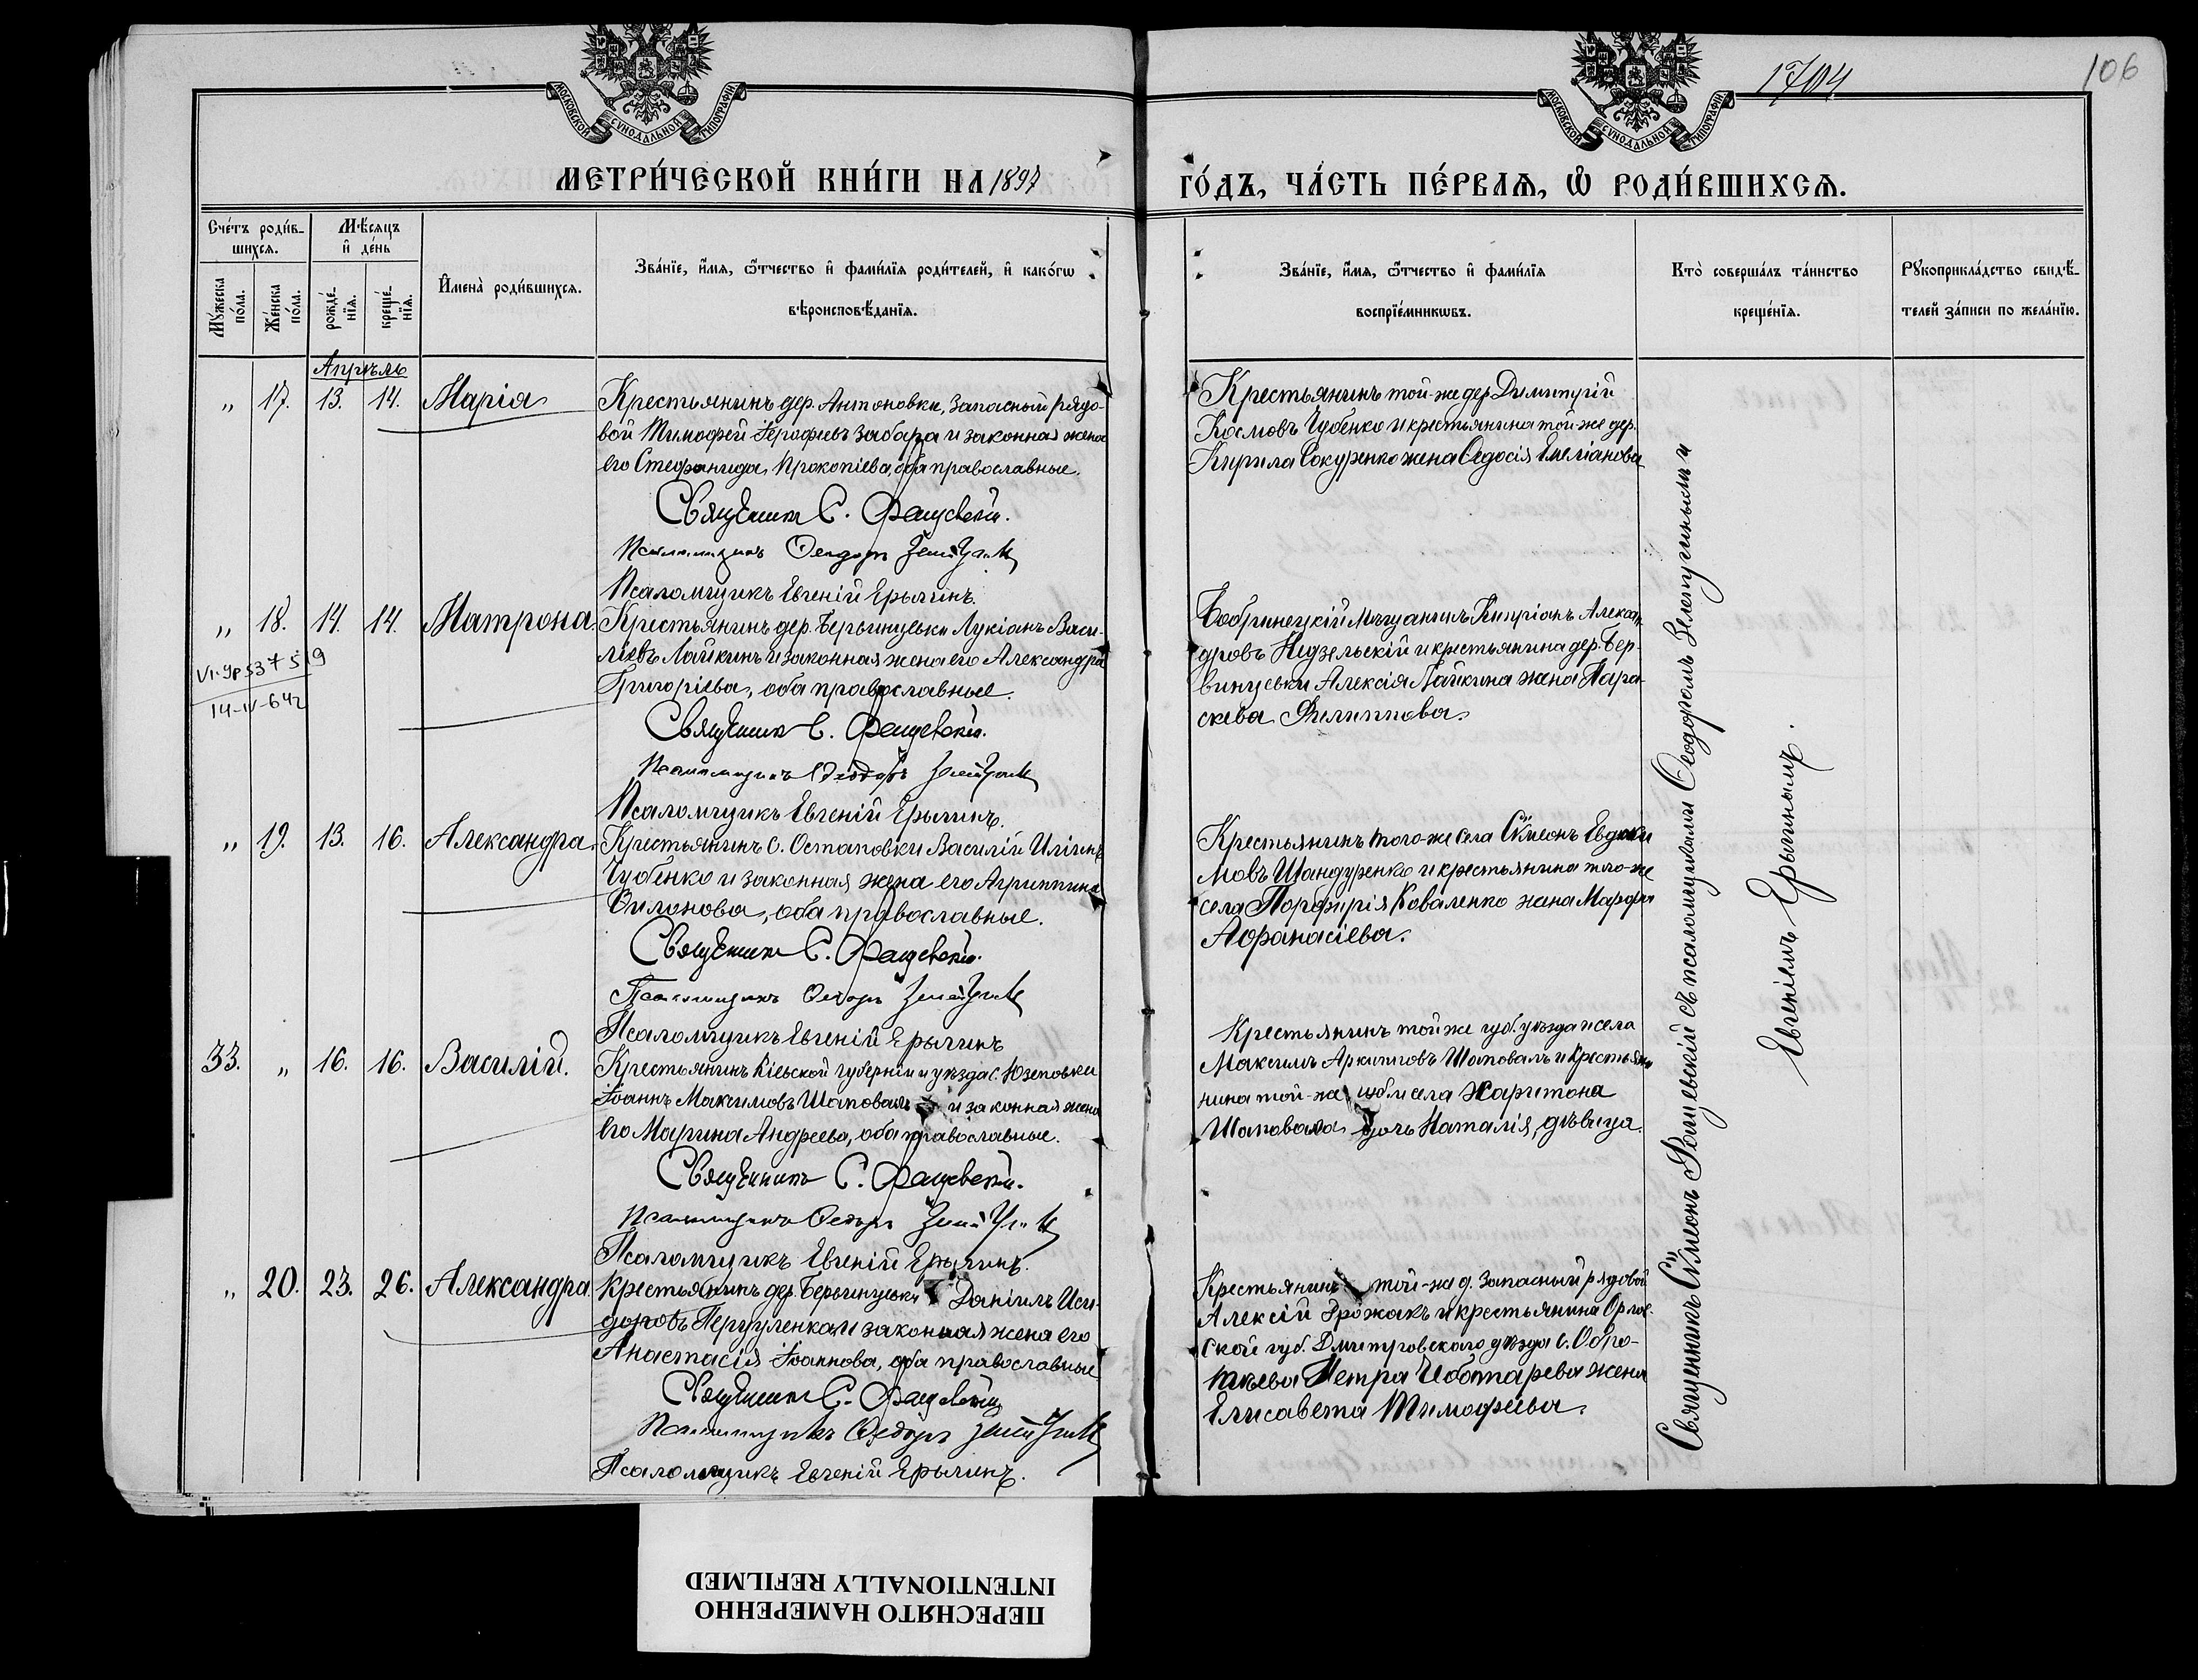 МОСКОВСКОЙ СѴНОДАЛЬНОЙ ТИПОГРАФІИ.
МОСКОВСКОЙ СѴНОДАЛЬНОЙ ТИПОГРАФІИ.
1704
106
МЕТРИ́ЧЕСКОЙ КНИ́ГИ НА 1897
ГО́ДЪ, ЧА́СТЬ ПЕ́РВАѦ, Ѽ РОДИ́ВШИХСѦ.
Сче́тъ роди́в-
шихсѧ.
Мѣ́сяцъ
и҆ де́нь
Мꙋ́жеска
по́ла.
Же́нска
по́ла.
рожде́-
нїѧ.
креще́-
нїѧ.
И҆мена̀ роди́вшихсѧ.
Зва́нїе, и҆́мѧ, ѻ҆́тчество и҆ фами́лїѧ роди́телей, и҆ како́гѡ
вѣроисповѣ́данїѧ.
Зва́нїе, и҆́мѧ, ѻ҆́тчество и҆ фами́лїѧ
воспрїе́мникѡвъ.
Кто̀ соверша́лъ та́инство
креще́нїѧ.
Рꙋкоприкла́дство свидѣ́-
телей за́писи по жела́нїю.
Апрѣль
„ 17. 13. 14. Марія
Крестьянинъ дер. Антоновки, запасный рядо-
вой Тимофей Іерофеевъ Забара и законная жена
его Стефанида Прокопіева, оба православные.
Священник С. Фащевскій.
Псаломщикъ Феодоръ
Псаломщикъ Евгеній Ерыгинъ.
Крестьянинъ той-же дер. Димитрій
Космовъ Чубенко и крестьянина той же дер.
Кирила Сокуренко жена Ѳедосія Емеліанова
„ 18. 14. 14. Матрона
VI-УР 537519
14-IV-642
Крестьянинъ дер. Бервинцевки Лукіанъ Васи-
ліевъ Лайкинъ и законная жена его Александра
Григоріева, оба православные.
Священник С. Фащевскій.
Псаломщикъ Феодоръ
Псаломщикъ Евгеній Ерыгинъ.
Бобринецкій мѣщанинъ Кипріанъ Алексан-
дровъ Недзельскій и крестьянина дер. Бер-
винцевки Алексія Лайкина жена Пара-
скева Филиппова.
„ 19. 13. 16. Александра
Крестьянинъ с. Остаповки Василій Иліинъ
Чубенко и законная жена его Агриппина
Филонова, оба православные.
Священник С. Фащевскій.
Псаломщикъ Федоръ
Псаломщикъ Евгеній Ерыгинъ
Крестьянинъ того-же села Сѵмеонъ Евдоки-
мовъ Шандуренко и крестьянина того-же
села Порфирія Коваленко жена Марфа
Афанасіева.
33. „ 16. 16. Василій.
Крестьянинъ Кіевской губерніи и уѣзда с. Юзеповки
Іоаннъ Максимовъ Шаповалъ и законная жена
его Марина Андреева, оба православные.
Священникъ С. Фащевскій.
Псаломщикъ Федоръ
Псаломщикъ Евгеній Ерыгинъ.
Крестьянинъ той же губ. уѣзда и села
Максимъ Архипповъ Шаповалъ и крестьян-
нина той-же губ. и села Харитона
Шаповала дочь Наталія, дѣвица.
„ 20. 23. 26. Александра
Крестьянинъ дер. Бервинцевки Даніилъ Иси-
доровъ и законная жена его
Анастасія Іоаннова, оба православные.
Священник С. Фащевскій
Псаломщикъ Федоръ
Псаломщикъ Евгеній Ерыгинъ.
Крестьянинъ той-же д. запасный рядовой
Алексій Дрожакъ и крестьянина Орлов-
ской губ. Дмитровскаго уѣзда с.
Петра Чеботарева жена
Елисавета Тимофеева.
Священникъ Сѵмеонъ Фащевскій съ псаломщиками Ѳеодоромъ и
Евгеніемъ Ерыгинымъ.
ПЕРЕСНЯТО НАМЕРЕННО
INTENTIONALLY REFILMED